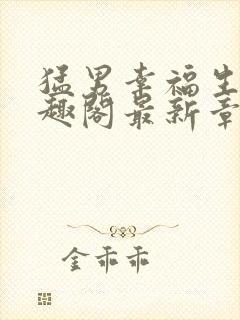 猛男幸福生
趣阁最新章
金乖乖